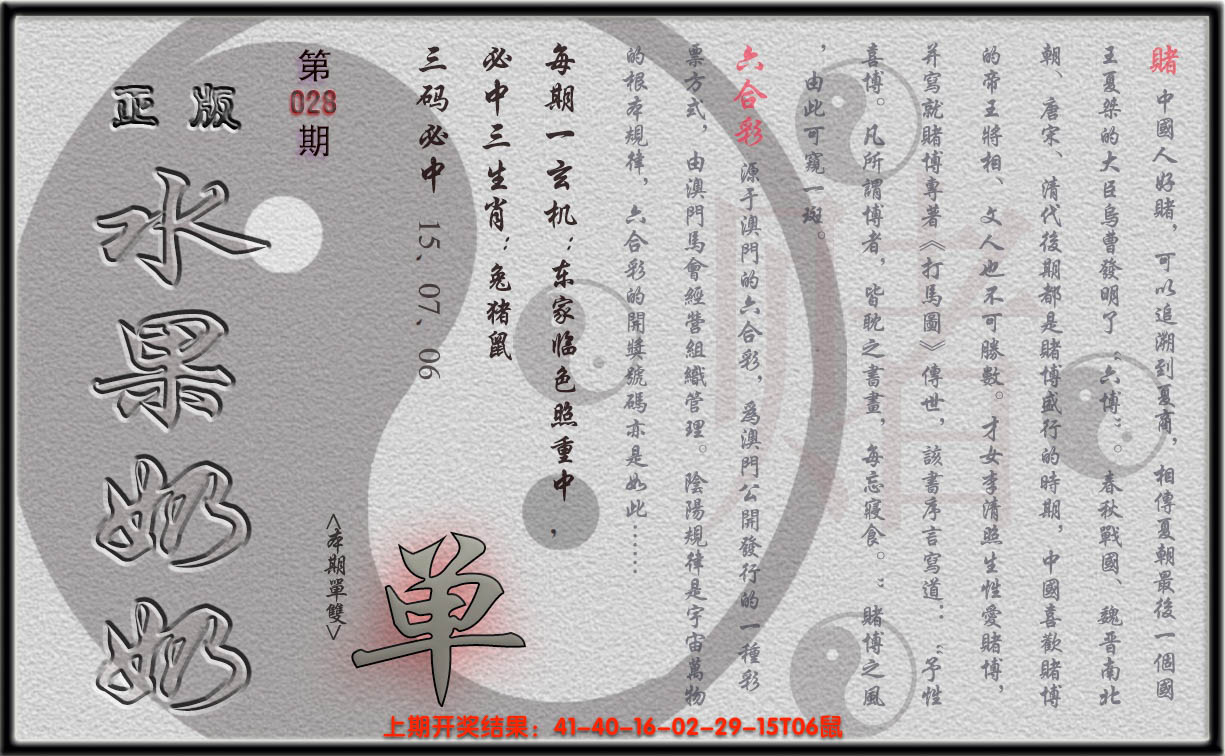 賭 中國人好賭，可以追溯到夏商，相傳夏朝最後一個國
王夏桀的大臣烏曹發明了“六博”。春秋戰國、魏晋南北
朝、唐宋、清代後期都是賭博盛行的時期，中國喜歡賭博
的帝王將相、文人也不可勝數。才女李清照生性愛賭博，
并寫就賭博專著《打馬圖》傳世，該書序言寫道：“予性
喜博。凡所謂博者，皆耽之書畫，每忘寢食。”賭博之風
，由此可窺一斑。
六合彩 源于澳門的六合彩，為澳門公開發行的一種彩
票方式，由澳門馬會經營組織管理。陰陽規律是宇宙萬物
的根本規律，六合彩的開獎號碼亦是如此……
每期一玄机：东家临色照重中，
必中三生肖：兔猪鼠
三码必中 15、07、06
单
<本期單雙>
第028期
正版
水果奶奶
赌
上期开奖结果：41-40-16-02-29-15T06鼠